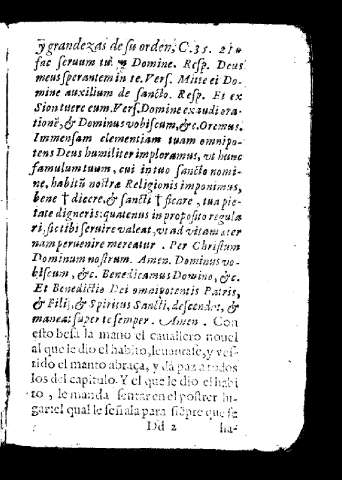 y grandezas de su orden, C.35. 210
fac seruum tuũ Domine. Resp. Deus
meus sperantem in te. Vers. Mitte ei Do-
mine auxilium de sancto. Resp. Et ex
Sion tuere eum. Vers. Domine exaudi ora-
tionẽ, & Dominus vobiscum, &c. Oremus.
Immensam clementiam tuam omnipo-
tens Deus humiliter imploramus, vt hunc
famulum tuum, cui in tuo sancto nomi-
ne, habitũ nostræ Religionis imponimus,
bene † dicere, & sancti † ficare, tua pie-
tate digneris: quatenus in proposito regula
ri, sic tibi seruire valeat, vt ad vitam æter
nam peruenire mereatur. Per Christum
Dominum nostrum. Amen. Dominus vo-
biscum, &c. Benedicamus Domino, &c.
Et Benedictio Dei omnipotentis Patris,
& Filij, & Spiritus Sancti, descendat, &
maneat super te semper. Amen. Con
esto besa la mano el cauallero nouel
al que le dio el habito, leuantase, y ves-
tido el manto abraça, y dà paz a todos
los del capitulo. Y el que le dio el habi
to, le manda sentar en el postrer lu-
gar, el qual le señala para siẽpre que se
Dd 2 ha-